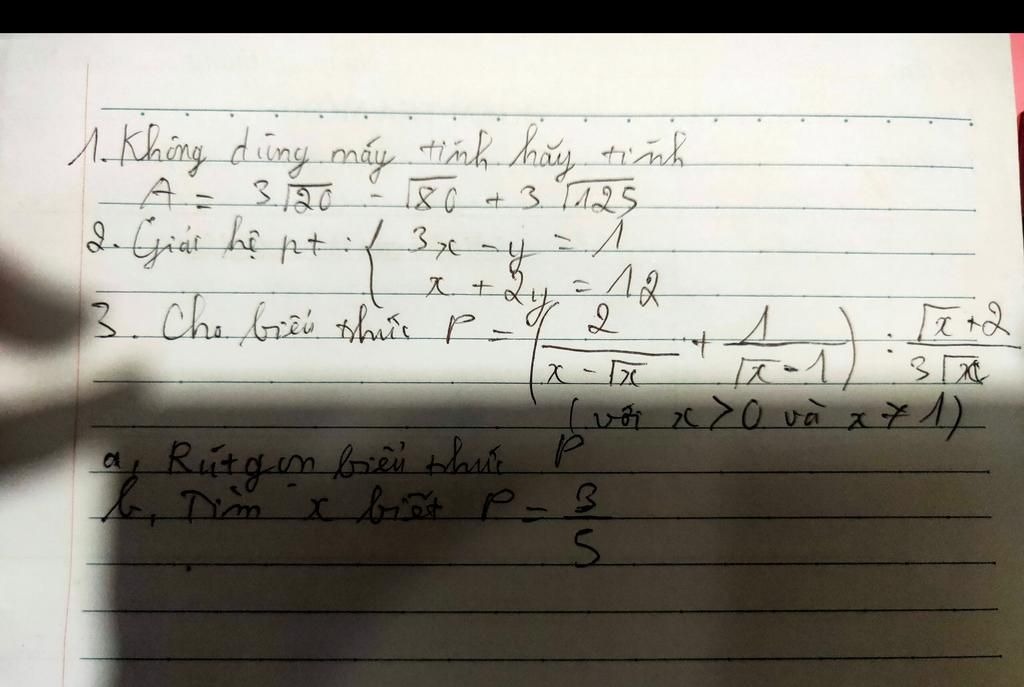 1. Không dùng máy tính hãy tính
A = 3√20 - √80 + 3√125
2. Giải hệ pt : { 3x - y = 1
x + 2y = 12
3. Cho biểu thức P = ( 2/(x - √x) + 1/(√x - 1) ) : (√x + 2)/(3√x)
(với x > 0 và x ≠ 1)
a, Rút gọn biểu thức P
b, Tìm x biết P = 3/5